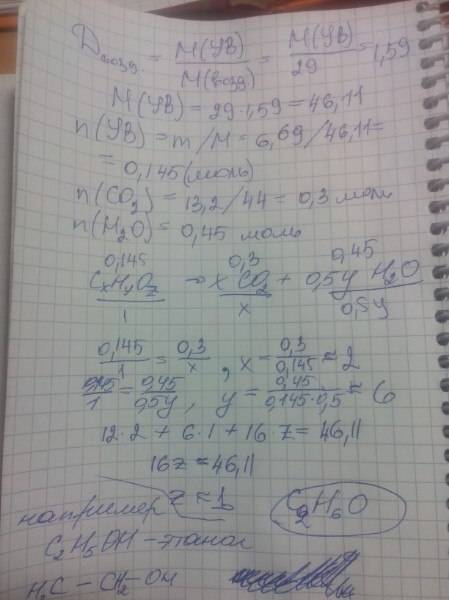 Dвозд. = M(УВ)/M(возд) = M(УВ)/29 = 1,59
M(УВ) = 29·1,59 = 46,11
n(УВ) = m/M = 6,69/46,11 =
= 0,145 (моль)
n(CO₂) = 13,2/44 = 0,3 моль
n(H₂O) = 0,45 моль
0,145 0,3 0,45
CxHyOz → x CO₂ + 0,5y H₂O
1 x 0,5y
0,145/1 = 0,3/x , x = 0,3/0,145 ≈ 2
0,145/1 = 0,45/0,5y , y = 0,45/0,145·0,5 ≈ 6
12·2 + 6·1 + 16·z = 46,11
16z = 46,11
z ≈ 1
C₂H₆O
например
C₂H₅OH – этанол
H₃C – CH₂ – OH